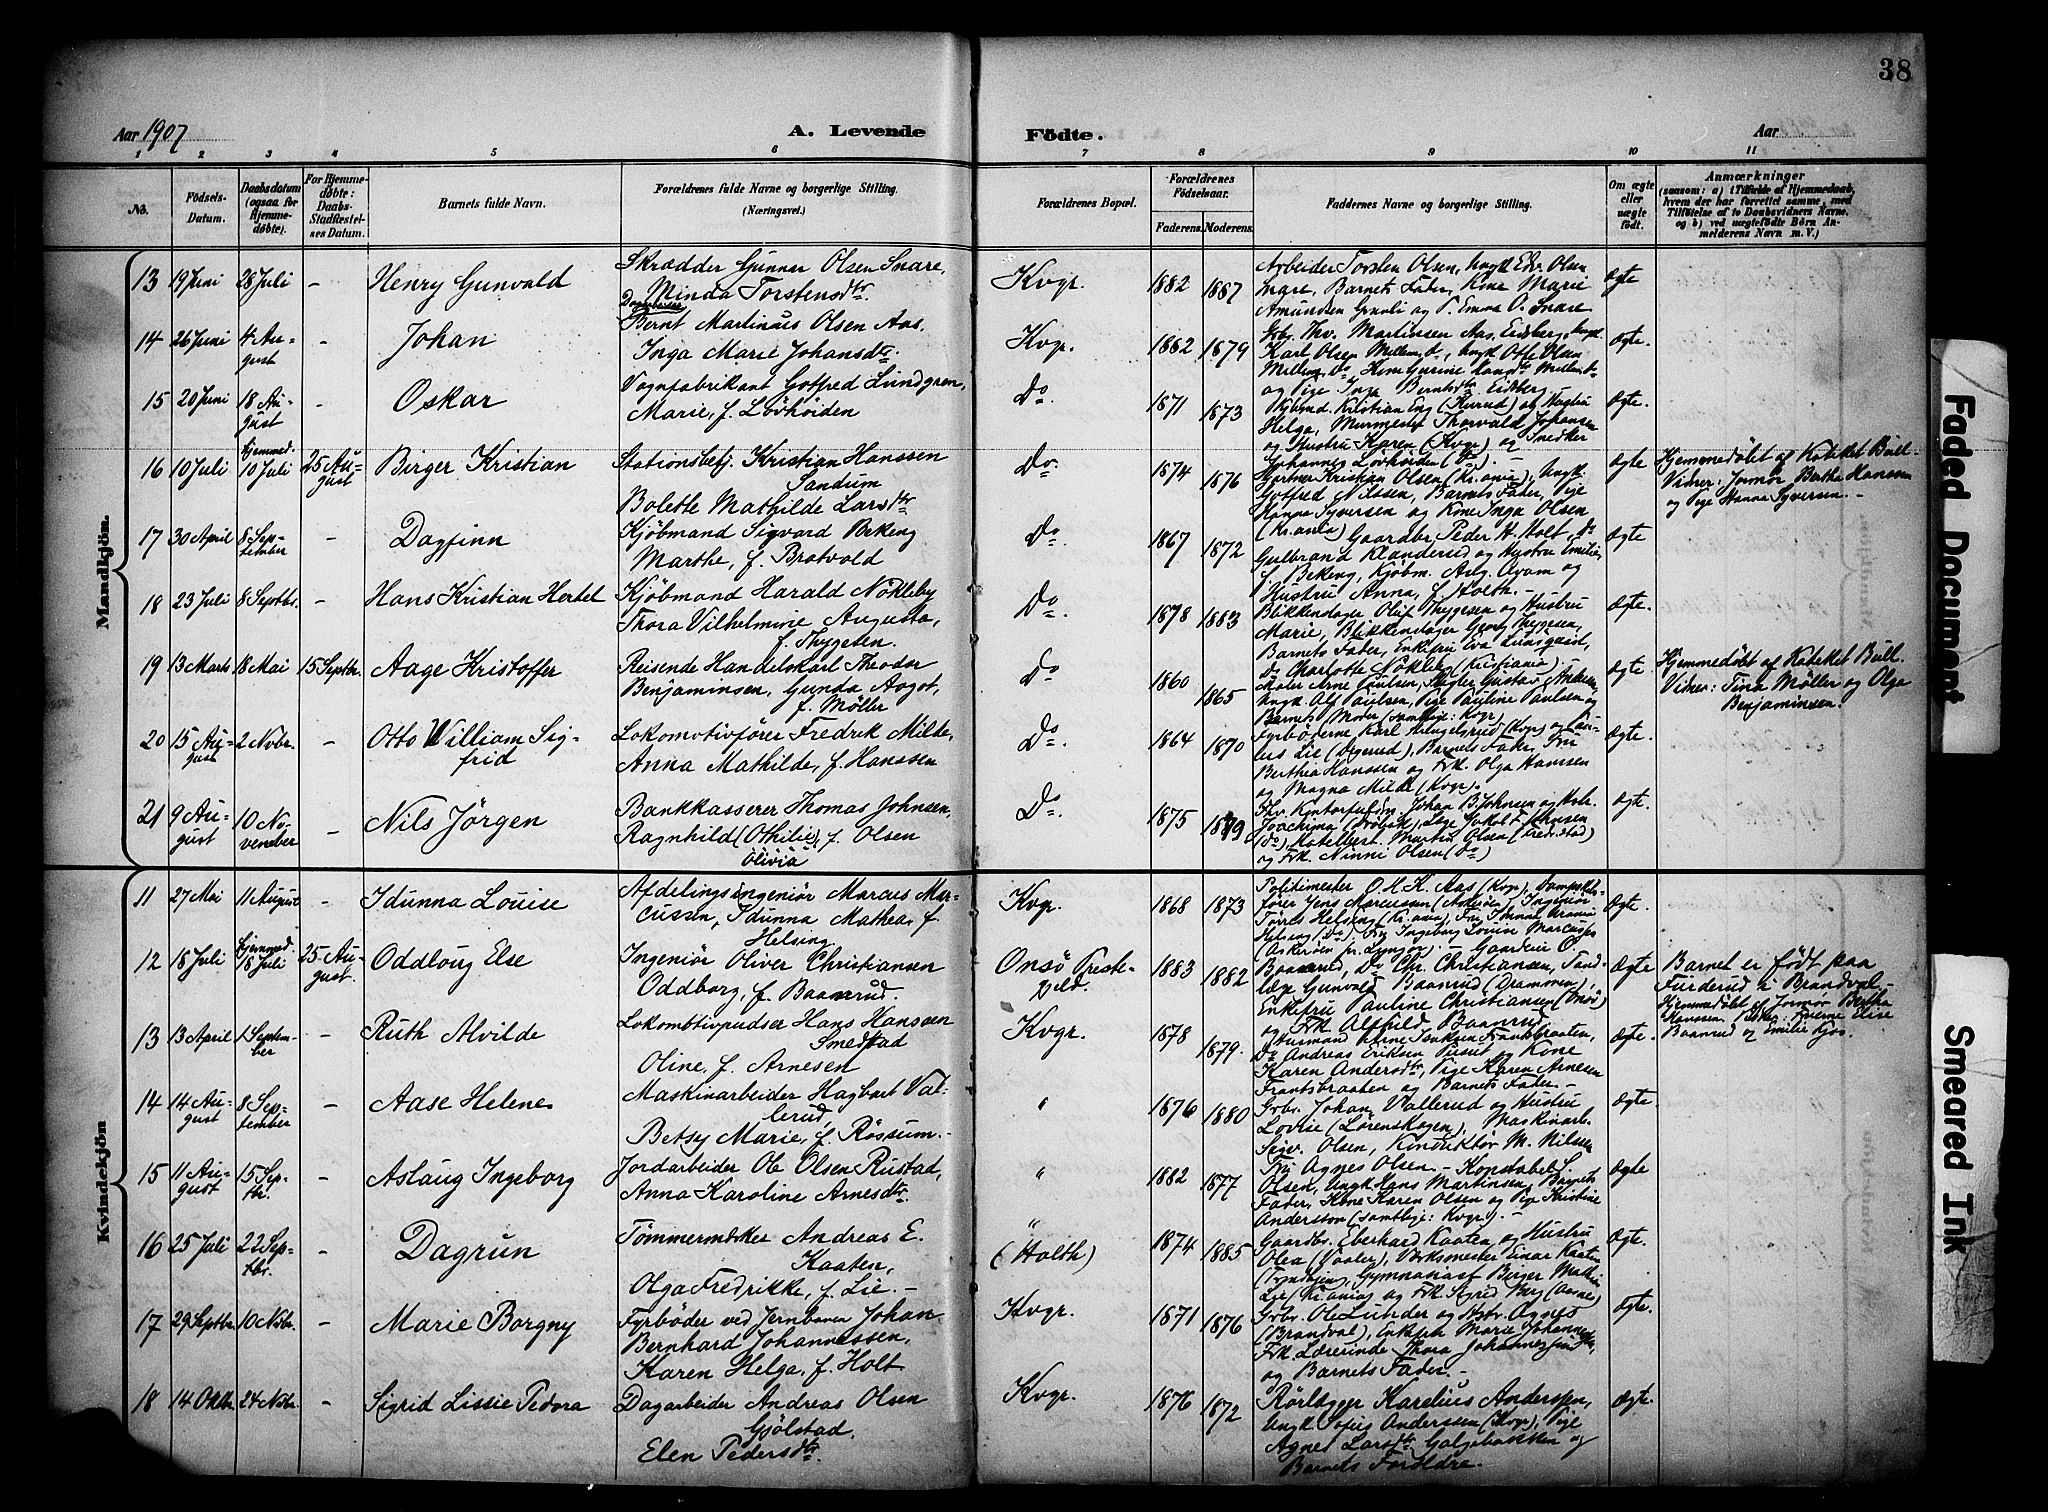 38
Aar 1907
A. Levende Födte.
Aar
1 2 3 4 5 6 7 8 9 10 11
No.
Födsels-Datum.
Daabsdatum (ogsaa for Hjemme-döbte).
For Hjemme-döbte: Daabs-Stadfæstel-ses Datum.
Barnets fulde Navn.
Forældrenes fulde Navne og borgerlige Stilling. (Næringsvei.)
Forældrenes Bopæl.
Forældrenes Födselsaar.
Faderens. Moderens.
Faddernes Navne og borgerlige Stilling.
Om ægte eller uægte födt.
Anmærkninger
(saasom: a) i Tilfælde af Hjemmedaab, hvem der har forrettet samme, med Tilföielse af to Daabsvidners Navne, og b) ved uægtefödte Börn Anmelderens Navn m. V.)
Mandkjön.
13 19 Juni 28 Juli - Henry Gunvald
Skrædder Gunner Olsen Snare,
Minda Torstensdtr.
Kvgr. 1882 1887
Arbeider Torsten Olsen, Ungk. Edv. Olsen
Snare, Barnets Fader, Kone Marie
Amundsen og P. Emma O. Snare
Ægte
14 26 Juni 4 August - Johan
Dagarbeider
Bernt Martinius Olsen Aas.
Inga Marie Johansdtr.
Kvgr. 1882 1879
Gbr. Thv. Martinsen Aas, Eidsberg, Ungk.
Karl Olsen Do, Ungk. Otto Olsen
og Pige Inga Berntsdtr. Eidsberg
Ægte.
15 20 Juni 18 August - Oskar
Vognfabrikant Gotfred Lundgren,
Marie, f. Lövhöiden
Do. 1871 1873
Kristian Eng og Hustru
Helga, Murmester Thorvald Johansen
og Hustru Karen (Kvgr) og Snedker
Johannes Lövhöiden (Do). -
Ægte.
16 10 Juli Hjemmed. 10 Juli 25 August Birger Kristian
Stationsbetj. Kristian Hanssen
Sandum
Bolette Mathilde Larsdtr
Do. 1874 1876
Gartner Kristian Olsen (Kr.ania), Ungk.
Gotfred Nilssen, Barnets Fader, Pige
Hanna Syversen og Kone Inga Olsen
(Kr.ania)
Ægte
Hjemmedöbt af Kateket Bull.
Vidner: Jormor Bertha Hanssen
og Pige Hanna Syversen. -
17 30 April 8 September - Dagfinn
Kjöbmand Sigvard Bekeng
Marthe, f. Brotvold
Do. 1867 1872
Gaardbr. Peder H. Holt, Do
Gulbrand Klanderud og Hustru Emilie,
f. Bekeng, Kjöbm. Aug. Avam og
Hustru Anna, f. Holth. -
Ægte
18 23 Juli 8 Septbr. - Hans Kristian Hertel
Kjöbmand Harald Nökleby
Thora Vilhelmine Augusta,
f. Thygesen.
Do. 1878 1883
Blikkenslager Oluf Thygesen og Hustru
Marie, Blikkenslager Georg Thygesen,
Barnets Fader, Enkefru Eva Lundgaard,
Do Charlotte Nökleby (Kristiania). -
Ægte
19 13 Marts 18 Mai 15 Septbr. Aage Kristoffer
Reisende Handelskarl Theodor
Benjaminsen, Gunda Aagot,
f. Möller
Do 1860 1865
Maler Arne Paulsen, Gustav Andersen,
Ungk. Alf Paulsen, Pige Pauline Paulsen og
Barnets Moder (samtlige: Kvgr)
Ægte
Hjemmedöbt af Kateket Bull.
Vidner: Tina Möller og Olga
Benjaminsen.
20 15 August 2 Novbr. - Otto William Sigfrid
Lokomotivförer Fredrik Milde,
Anna Mathilde, f. Hanssen
Do. 1864 1870
Fyrböderne Karl (Kvgr) og
Lie, Barnets Fader, Fru
Berthea Hanssen og Frk. Olga Hanssen
og Magna Milde (Kvgr). -
Ægte.
21 9 August 10 November - Nils Jörgen
Bankkasserer Thomas Johnsen,
Ragnhild (Othilie), f. Olsen
Olivia
Do. 1875 1879
Johan B. Johnsen og
Joachima, Læge Jakob Johnsen
(Do), Martin Olsen (Fredr.stad)
og Frk. Ninni Olsen (Do)
Ægte.
Kvindekjön
11 27 Mai 11 August - Idunna Louise
Afdelingsingeniör Marcus Marcussen, Idunna Mathea, f.
Helsing
Kvgr. 1868 1873
Politimester O. M. K. Aas (Kvgr), Dampskibsförer Jens Marcussen, Ingeniör
Törres Helsing (Kr.ania), Fru
Helsing (Do), Frk. Ingeborg Louise Marcussen
Ægte.
12 18 Juli Hjemmed. 18 Juli 25 August. Oddlaug Else
Ingeniör Oliver Christiansen
Oddborg, f. Baanrud.
Onsö Præstegjeld. 1883 1882
Gaardeier O.
Baanrud, Do Chr. Christiansen, Tandlæge Gunvald Baanrud (Drammen),
Enkefru Pauline Christiansen (Onsö)
og Frk. Alfhild Baanrud
Ægte
Barnet er födt paa
Furderud i Brandval. -
Hjemmedöbt af Jormor Bertha
Hanssen. Vidner: Elise
Baanrud og Emilie Kjos.
13 13 April 1 September - Ruth Alvilde
Lokomotivpudser Hans Hanssen
Smedstad
Oline, f. Arnesen
Kvgr. 1878 1879.
Husmand Frantsbraaten,
Do Andreas Eriksen og Kone
Karen Andersdtr, Pige Karen Arnesen
Frantsbraaten og Barnets Fader. -
Ægte.
14 14 August 8 September - Aase Helene
Maskinarbeider Hagbart Vallerud,
Betsy Marie, f. Rössum. -
" 1876 1880
Grbr. Johan Vallerud og Hustru
Lovise (Lörenskogen), Maskinarb.
Sigv. Olsen, Konduktör M. Nilsen
Fru Agnes Olsen. -
Ægte.
15 11 August 15 Septbr. - Aslaug Ingeborg
Jordarbeider Ole Olsen Rustad,
Anna Karoline Arnesdtr.
" 1882 1877
Konstabel S.
Olsen, Ungk. Hans Martinsen, Barnets
Fader, Kone Karen Olsen og Pige Kristine
Andersson (samtlige: Kvgr). -
Ægte
16 25 Juli 22 Septbr. - Dagrun
Tömmermærker Andreas E.
Kaaten,
Olga Fredrikke, f. Lie. -
" (Holth) 1874 1885
Gaardbr. Eberhard Kaaten og Hustru
Olea (Vaaler), Verksmester Einar Kaaten
Gymnasiast Birger
Lie (Kr.ania) og Frk. Sigrid Berg
Ægte.
17 29 Septbr. 10 Novbr. - Marie Borgny
Fyrböder ved Jernbanen Johan
Bernhard Johannessen,
Karen Helga, f. Holt
Kvgr. 1871 1876
Grbr. Ole Lunder og Agnes
(Brandval), Enkefru Marie Johannessen
Frk. Lærerinde Thora Johannessen,
og Barnets Fader. -
Ægte.
18 14 Oktbr. 24 Novbr. - Sigrid Lissie Pedora
Dagarbeider Andreas Olsen
Gjölstad.
Elen Pedersdtr.
Kvgr. 1876 1872
Rörlægger Karelius Anderssen,
Ungk. Anderssen (Kvgr), Pige
Agnes Larsdtr. Galgebakken og
Barnets Forældre.
Ægte.
Faded Document
Smeared Ink